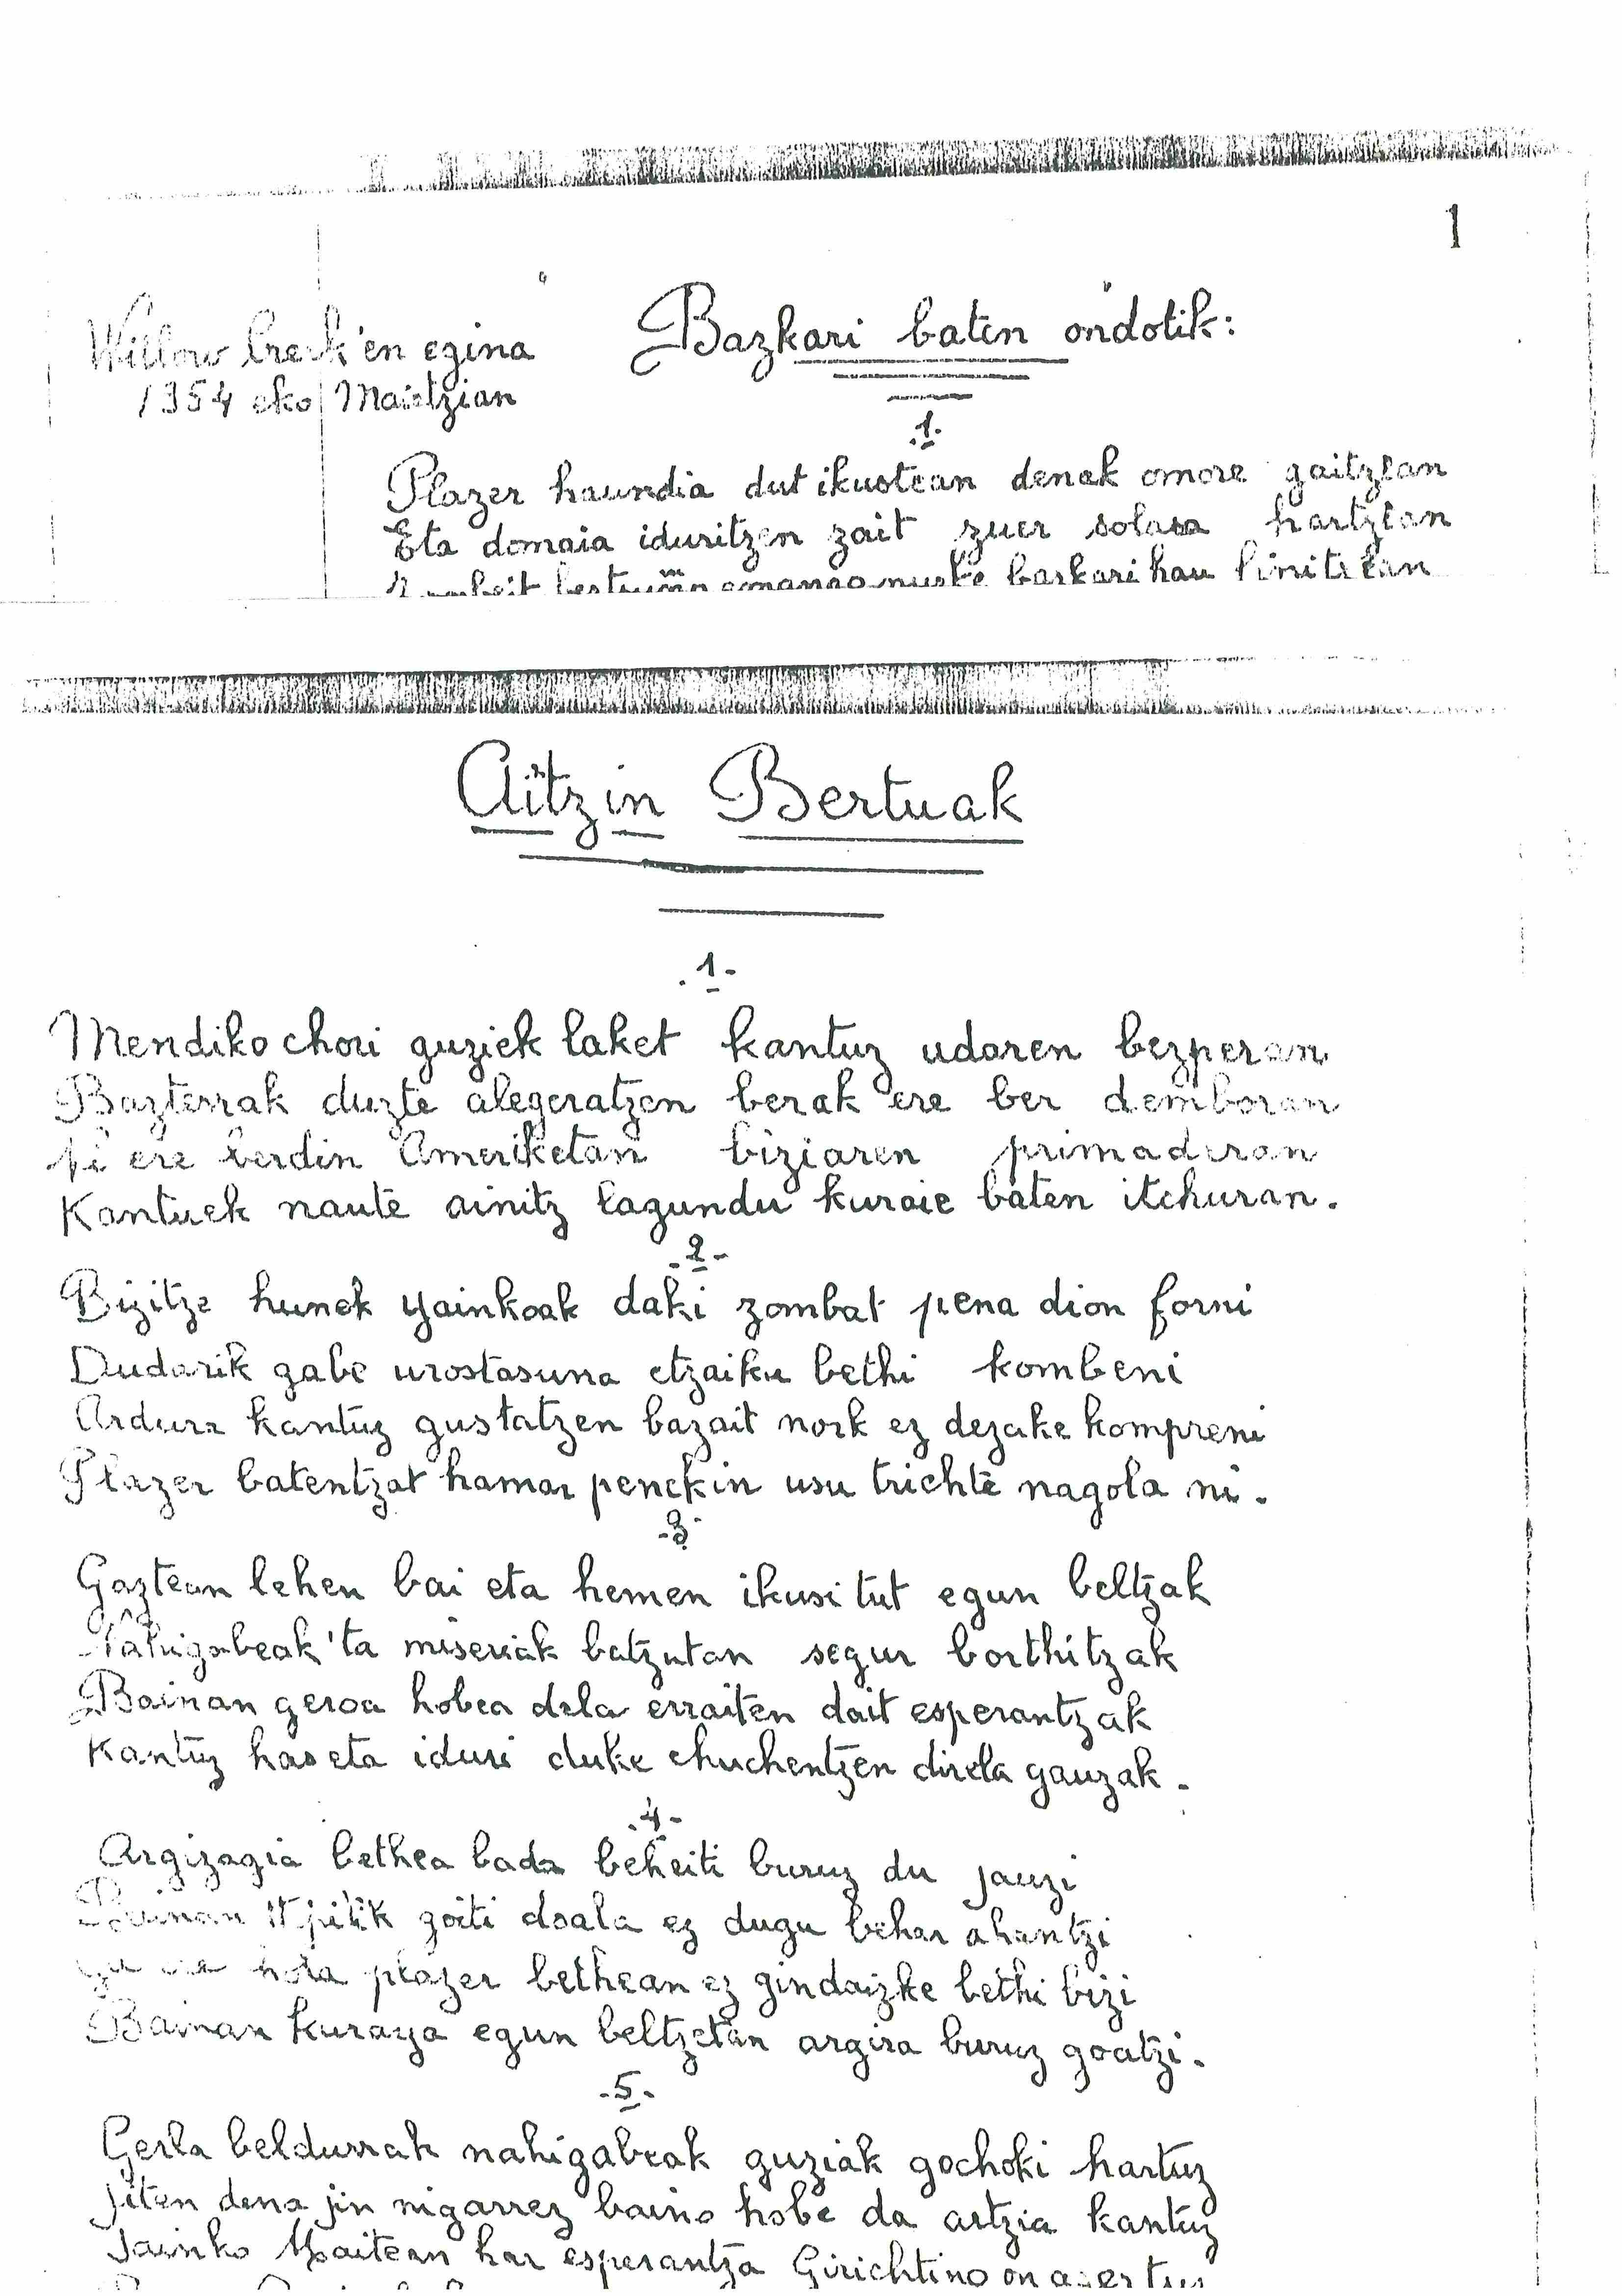 1
Bazkari baten ondotik:
Willow Creek'en egina
1954 eko Maietzian
.1.
Plazer haundia dut ikustean denak omore gaitzean
Eta domaia iduritzen zait zuer solasa hartzean
bertsu emanen nuske barkari hau finitzean
Aitzin Bertuak
.1-
Mendiko chori guziek laket kantuz udaren bezperan
Bazterrak duzte alegeratzen berak ere ber demboran
Ni ere berdin Ameriketan biziaren primaderan
Kantuek naute ainitz lagundu kuraie baten itchuran.
-2-
Bizitze hunek yainkoak daki zombat pena dion forni
Dudarik gabe urostasuna etzaiku bethi kombeni
Ardura kantuz gustatzen bazait nork ez dezake kompreni
Plazer batentzat hamar penekin usu trichte nagola ni.
-3-
Gaztean lehen bai eta hemen ikusi tut egun beltzak
Nahigabeak 'ta miseriak batzutan segur borthitzak
Bainan geroa hobea dela erraiten dait esperantzak
Kantuz has eta iduri duke chuchentzen direla gauzak.
.4-
Argizagia bethea bada beheiti buruz du jauzi
Bainan ttipitik goiti doala ez dugu behar ahantzi
Gu ere hola plazer bethean ez gindaizke bethi bizi
Bainan kuraya egun beltzetan argira buruz goatzi.
-5-
Gerla beldurrak nahigabeak guziak gochoki hartuz
Jiten dena jin nigarrez baino hobe da aitzia kantuz
Jainko Maitean har esperantza Girichtino on